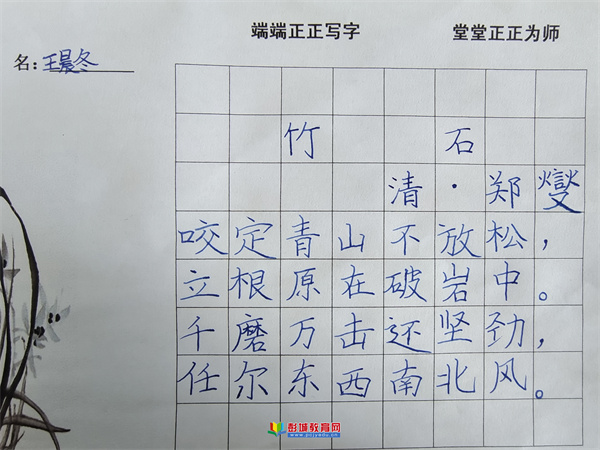 端端正正写字 堂堂正正为师
名：王晨冬
竹石
清·郑燮
咬定青山不放松，
立根原在破岩中。
千磨万击还坚劲，
任尔东西南北风。
彭城教育网